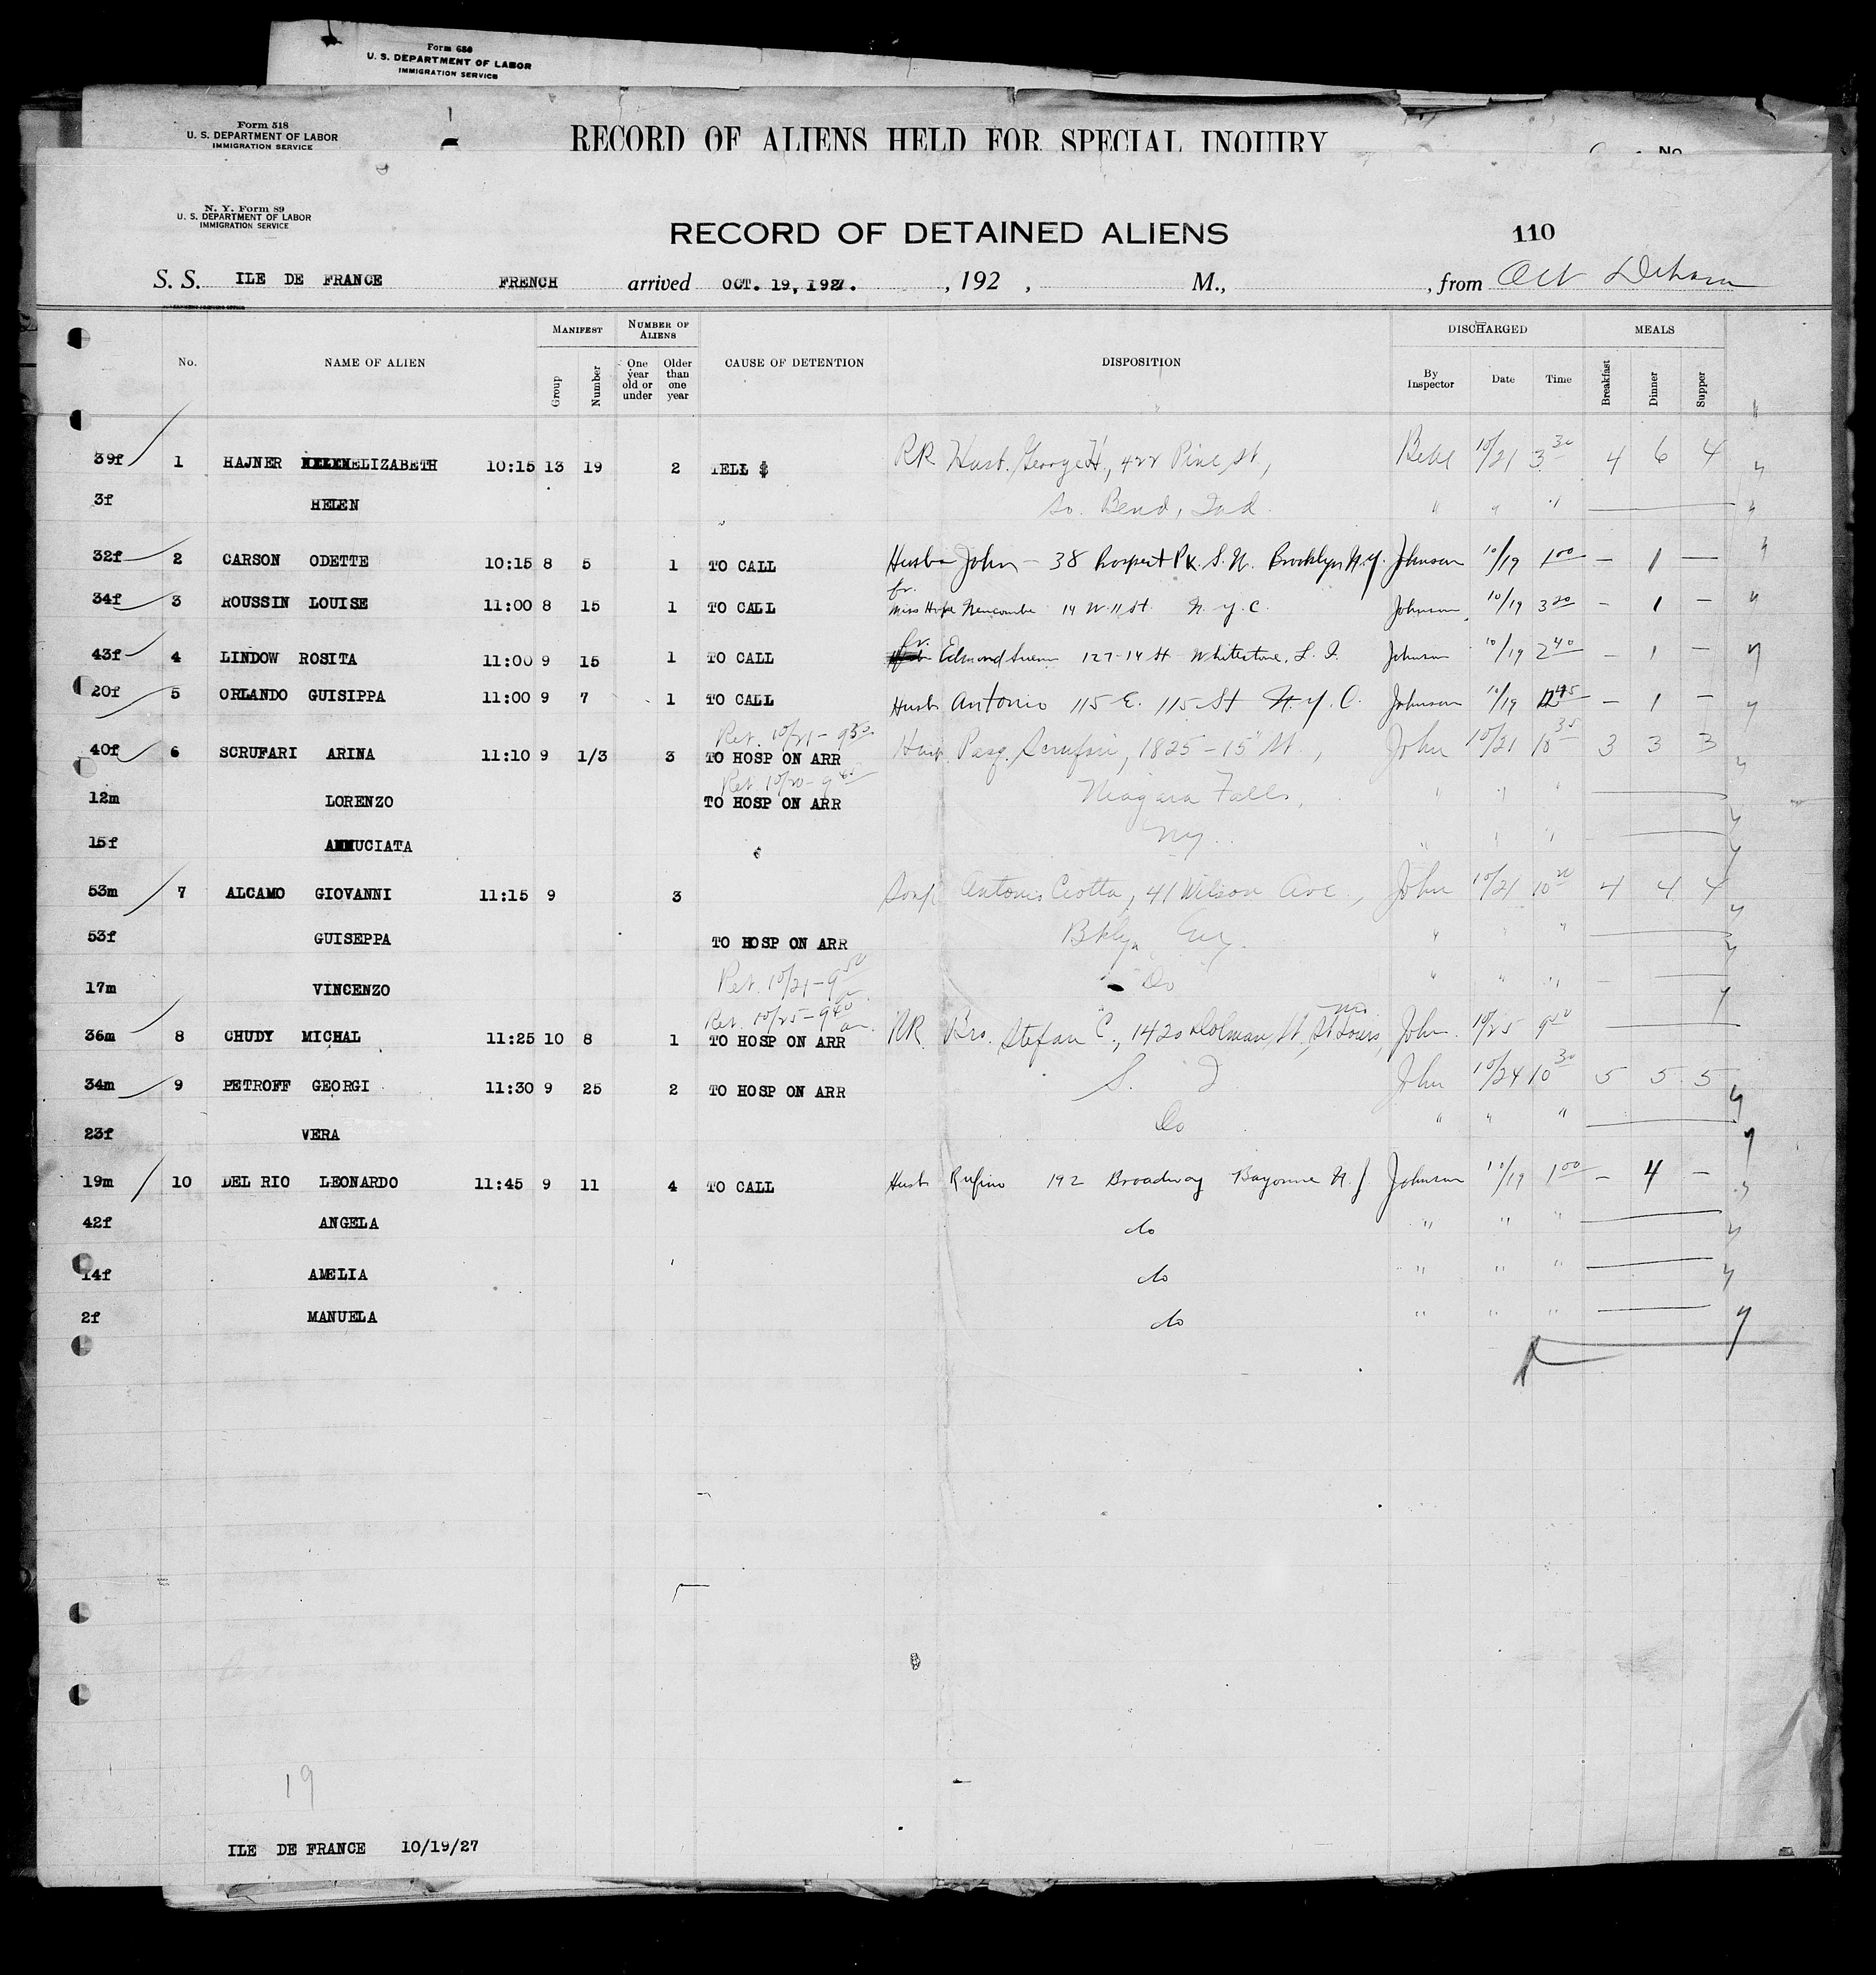 Form 680
U. S. DEPARTMENT OF LABOR
IMMIGRATION SERVICE
Form 518
U. S. DEPARTMENT OF LABOR
IMMIGRATION SERVICE
RECORD OF ALIENS HELD FOR SPECIAL INQUIRY
No
N. Y. Form 89
U. S. DEPARTMENT OF LABOR
IMMIGRATION SERVICE
RECORD OF DETAINED ALIENS 110
S. S. ILE DE FRANCE FRENCH arrived OCT. 19, 1927. , 192 , M., , from
No. NAME OF ALIEN MANIFEST Group Number NUMBER OF ALIENS One year old or under Older than one year CAUSE OF DETENTION DISPOSITION DISCHARGED By Inspector Date Time MEALS Breakfast Dinner Supper
39f 1 HAJNER ELIZABETH 10:15 13 19 2 TELL $ RR Husb. George H., 422 Pine St., 10/21 3 30 4 6 4
3f HELEN So. Bend, Ind. " " "
32f 2 CARSON ODETTE 10:15 8 5 1 TO CALL Husb John - 38 Prospect Pk. S.W. Brooklyn N.Y. Johnson 10/19 1 00 - 1 -
34f 3 ROUSSIN LOUISE 11:00 8 15 1 TO CALL fr. Miss Hope Newcombe 14 W. 11 St. N.Y.C. Johnson 10/19 3 20 - 1 -
43f 4 LINDOW ROSITA 11:00 9 15 1 TO CALL fr. Edmond 127-14 St Whitestone, L.I. Johnson 10/19 2 40 - 1 -
20f 5 ORLANDO GUISIPPA 11:00 9 7 1 TO CALL Husb Antonio 115 E. 115 St N.Y.C. Johnson 10/19 - 1 -
Ret. 10/21 - 9 30
40f 6 SCRUFARI ARINA 11:10 9 1/3 3 TO HOSP ON ARR Husb Pasq. Scrufari, 1825 - 15" St., John 10/21 10 35 3 3 3
Ret. 10/20 - 9 40
12m LORENZO TO HOSP ON ARR Niagara Falls, " " "
15f ANNUCIATA NY. " " "
53m 7 ALCAMO GIOVANNI 11:15 9 3 Antonio Ciotta, 41 Wilson Ave., John 10/21 10 20 4 4 4
53f GUISEPPA TO HOSP ON ARR Bklyn, " " "
17m VINCENZO Ret. 10/21 - 9 50 Do " " "
Ret. 10/25 - 9 40 am.
36m 8 CHUDY MICHAL 11:25 10 8 1 TO HOSP ON ARR RR Bro. Stefan C., 1420 Dolman St, St Louis, Mo. John 10/25 9 50
34m 9 PETROFF GEORGI 11:30 9 25 2 TO HOSP ON ARR S. I John 10/24 10 30 5 5 5
23f VERA Do " " "
19m 10 DEL RIO LEONARDO 11:45 9 11 4 TO CALL Husb Rufino 192 Broadway Bayonne N.J Johnson 10/19 1 00 - 4 -
42f ANGELA do " " "
14f AMELIA do " " "
2f MANUELA do " " "
19
ILE DE FRANCE 10/19/27